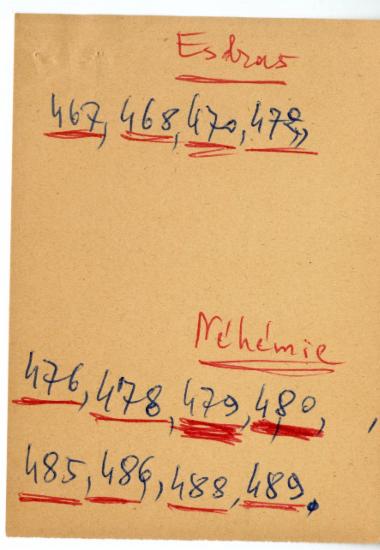 Esdras
467, 468, 470, 472,,
Néhémie
476, 478, 479, 480, ,
485, 486, 488, 489.